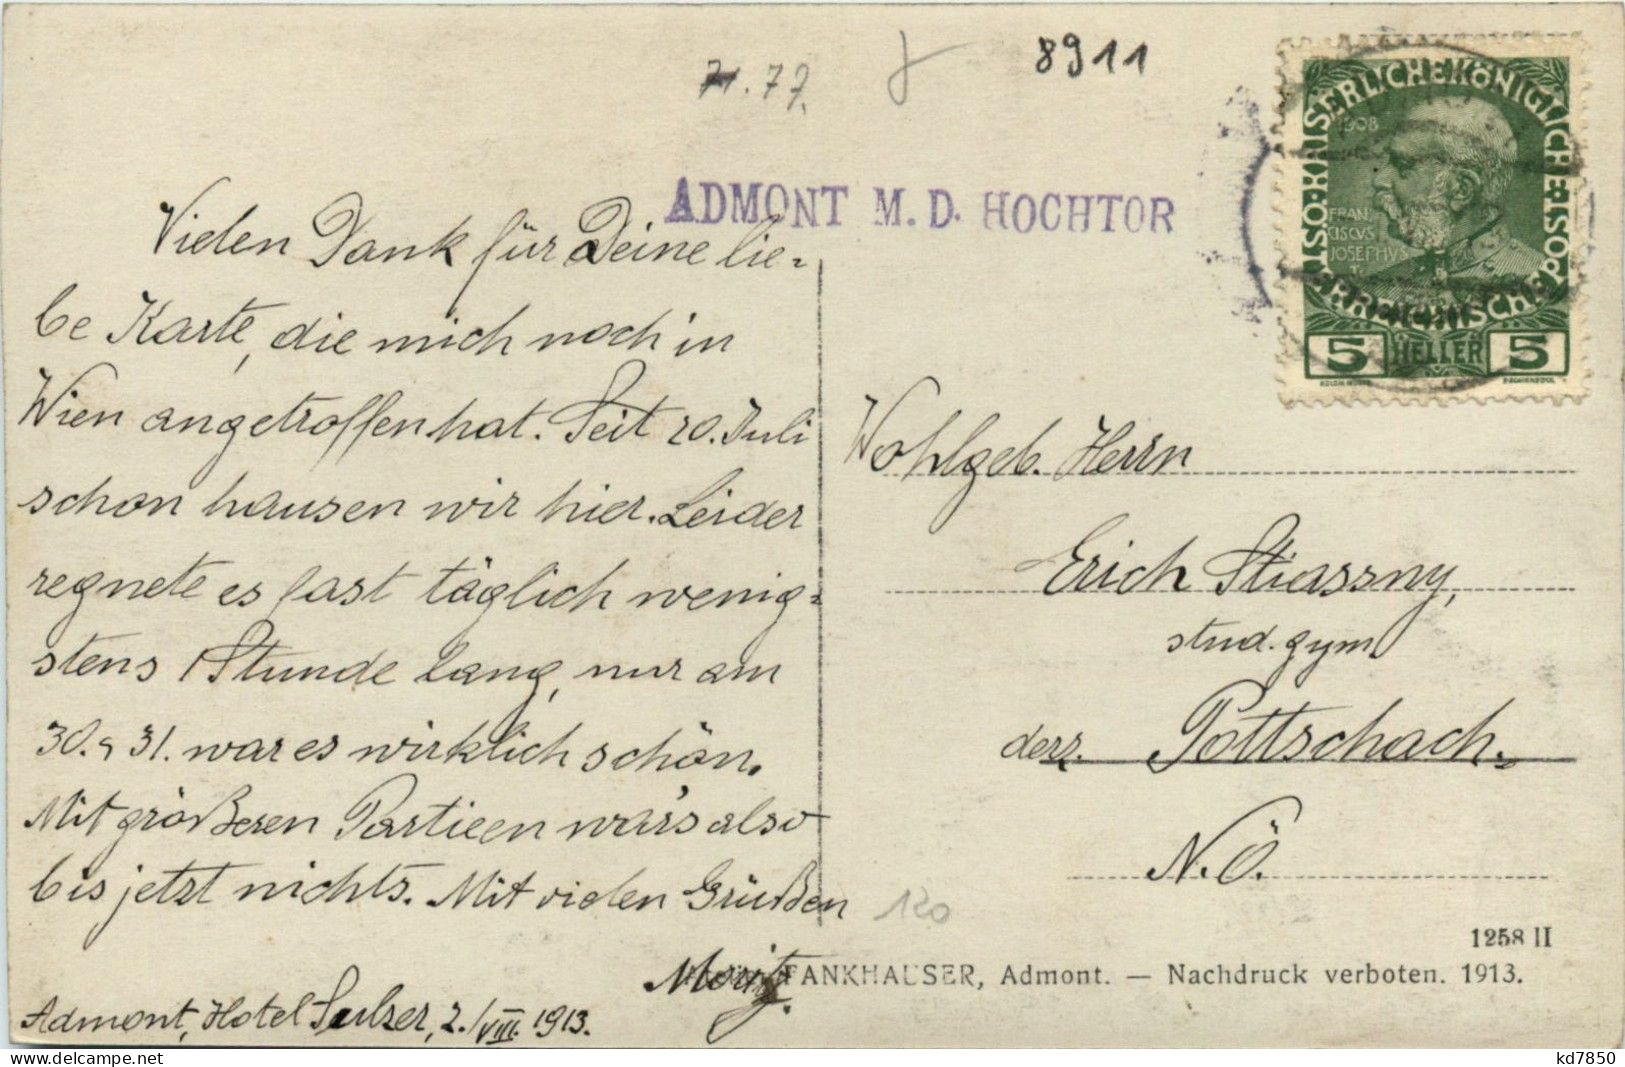 71.77.
8911
ADMONT M. D. HOCHTOR
Vielen Dank für Deine lie-
be Karte, die mich noch in
Wien angetroffen hat. Seit 20. Juli
schon hausen wir hier. Leider
regnete es fast täglich wenig-
stens 1 Stunde lang, nur am
30. & 31. war es wirklich schön.
Mit größeren Partieen war's also
bis jetzt nichts. Mit vielen Grüßen
Moritz.
Admont, Hotel Sulzer, 2./VIII. 1913.
KAISERLICHE KÖNIGLICHE
ÖSTERREICHISCHE POST
1908
FRAN
CISCVS
JOSEPHVS
I.
5 HELLER 5
Wohlgeb. Herrn
Erich Stiassny,
stud. gym.
derz. Pottschach.
N.Ö.
120
1258 II
FANKHAUSER, Admont. — Nachdruck verboten. 1913.
www.delcampe.net
kd7850